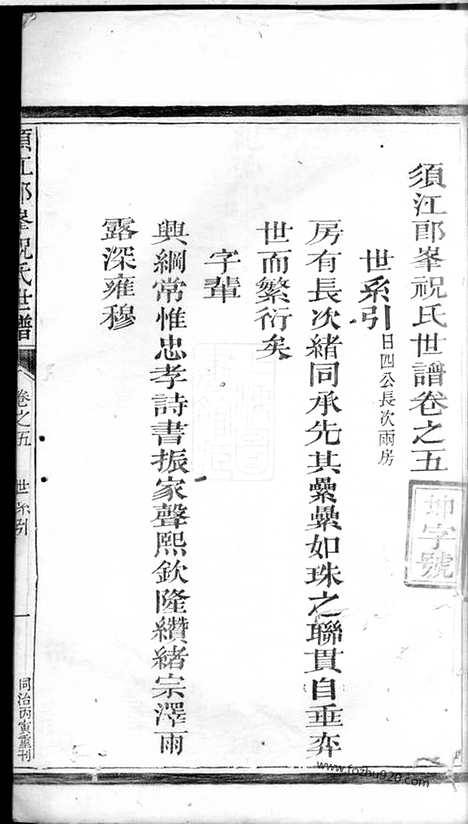 須江郎峯祝氏世譜卷之五
坤字號
世系引日四公長次兩房
房有長次緒同承先其纍纍如珠之聯貫自垂弈
世而繁衍矣
字輩
興綱常惟忠孝詩書振家聲熙欽隆纘緒宗澤雨
露深雍穆
須江郎峯祝氏世譜
卷之五
世系引
一
同治丙寅重刊
www.fozhu920.com